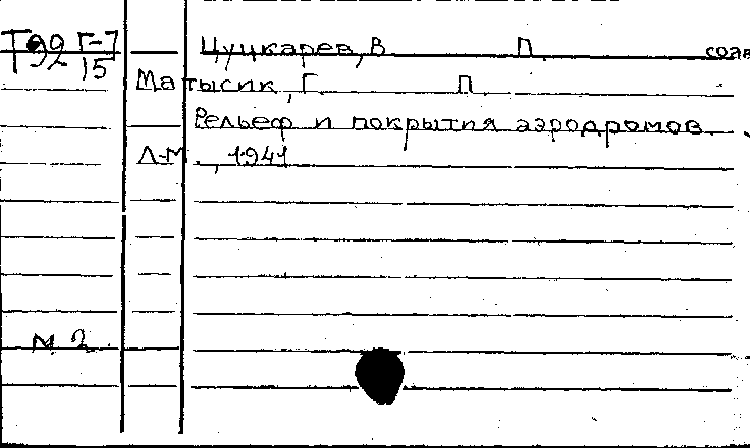 Т92 Г-7 Цуцкарев, В. П. соав
15
Матысик, Г. П.
Рельеф и покрытия аэродромов.
Л-М., 1941
М 2